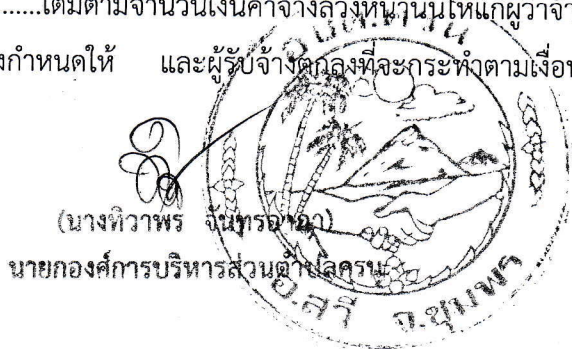 ......เต็มตามจำนวนเงินค่าจ้างล่วงหน้านั้นให้แก่ผู้ว่าจ้า
งกำหนดให้ และผู้รับจ้างตกลงที่จะกระทำตามเงื่อน
อบต.ครน
(นางทิวาพร จันทรอาภา)
นายกองค์การบริหารส่วนตำบลครน
อ.สวี จ.ชุมพร